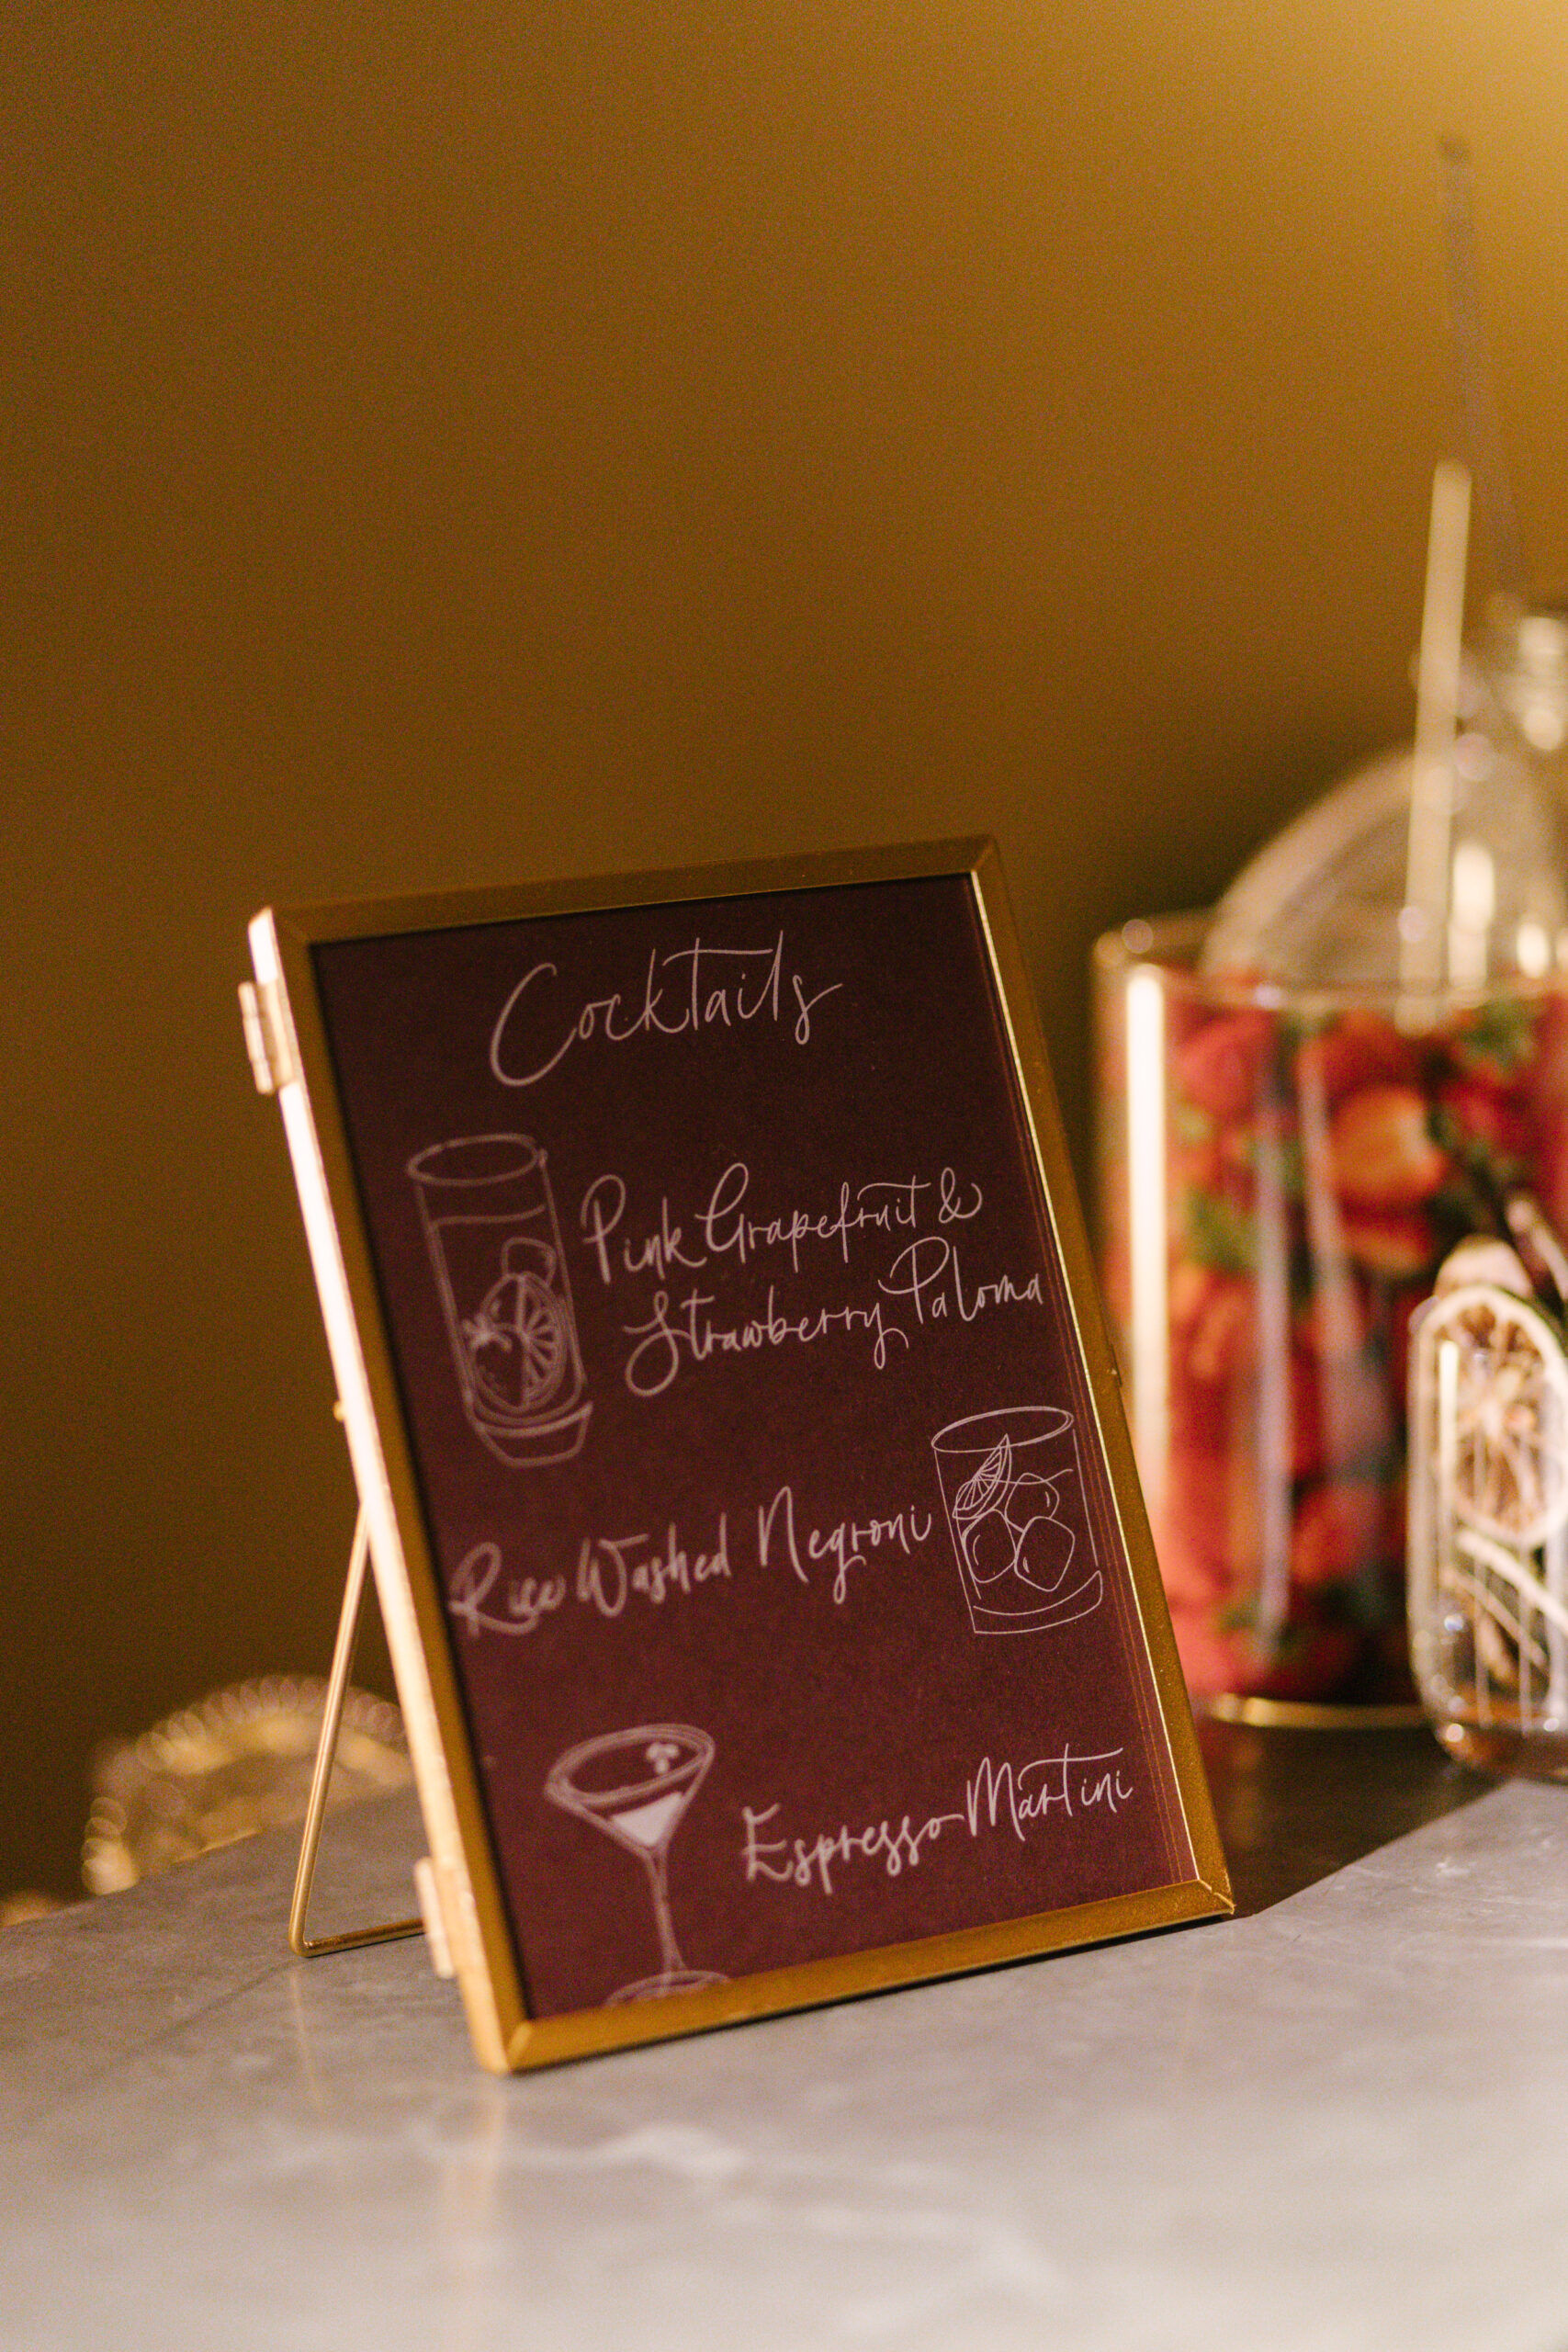 Cocktails
Pink Grapefruit &
Strawberry Paloma
Rice Washed Negroni
Espresso Martini